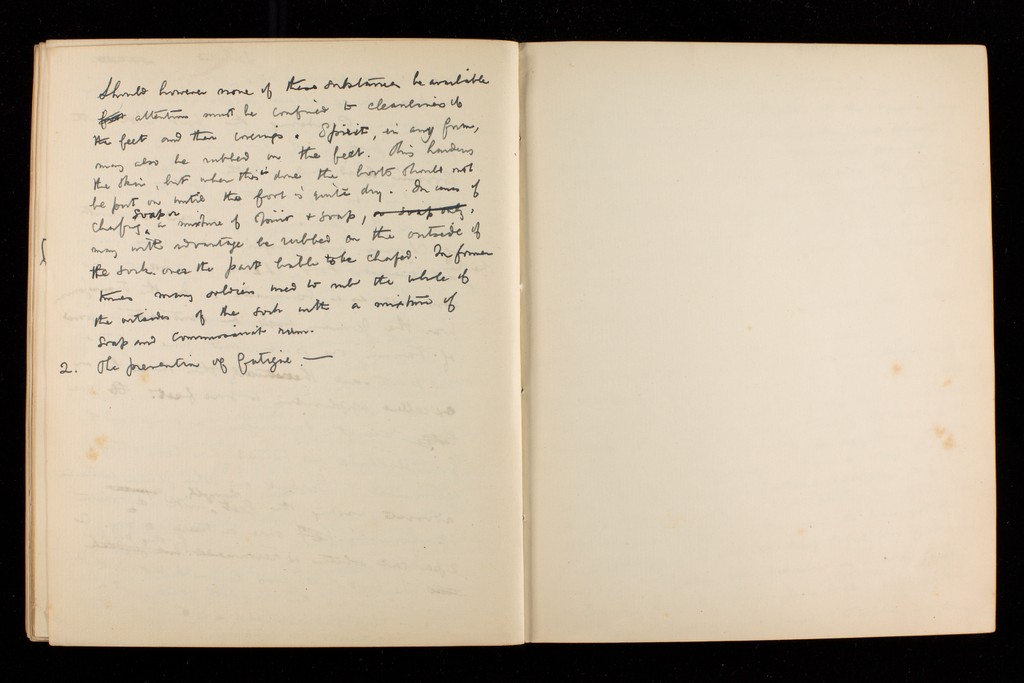 Should however none of these substances be available
attention must be confined to cleanliness of
the feet and their coverings. Spirit, in any form,
may also be rubbed on the feet. This hardens
the skin, but when this is done the boots should not
be put on until the foot is quite dry. In cases of
chafing, soap or a mixture of spirit & soap, or soap only,
may with advantage be rubbed on the outside of
the sock over the part liable to be chafed. In former
times many soldiers used to rub the whole of
the outsides of the sock with a mixture of
soap and commissariat rum.
2. The prevention of fatigue. —